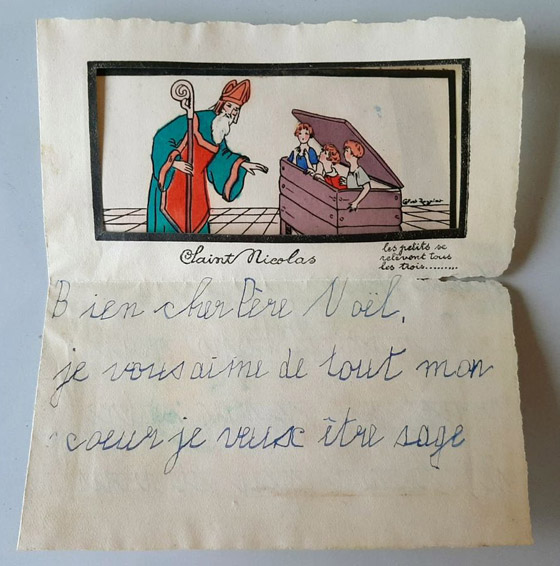 Saint Nicolas
les petits se
relèvent tous
les trois.........
Bien cher Père Noël,
je vous aime de tout mon
coeur je veux être sage